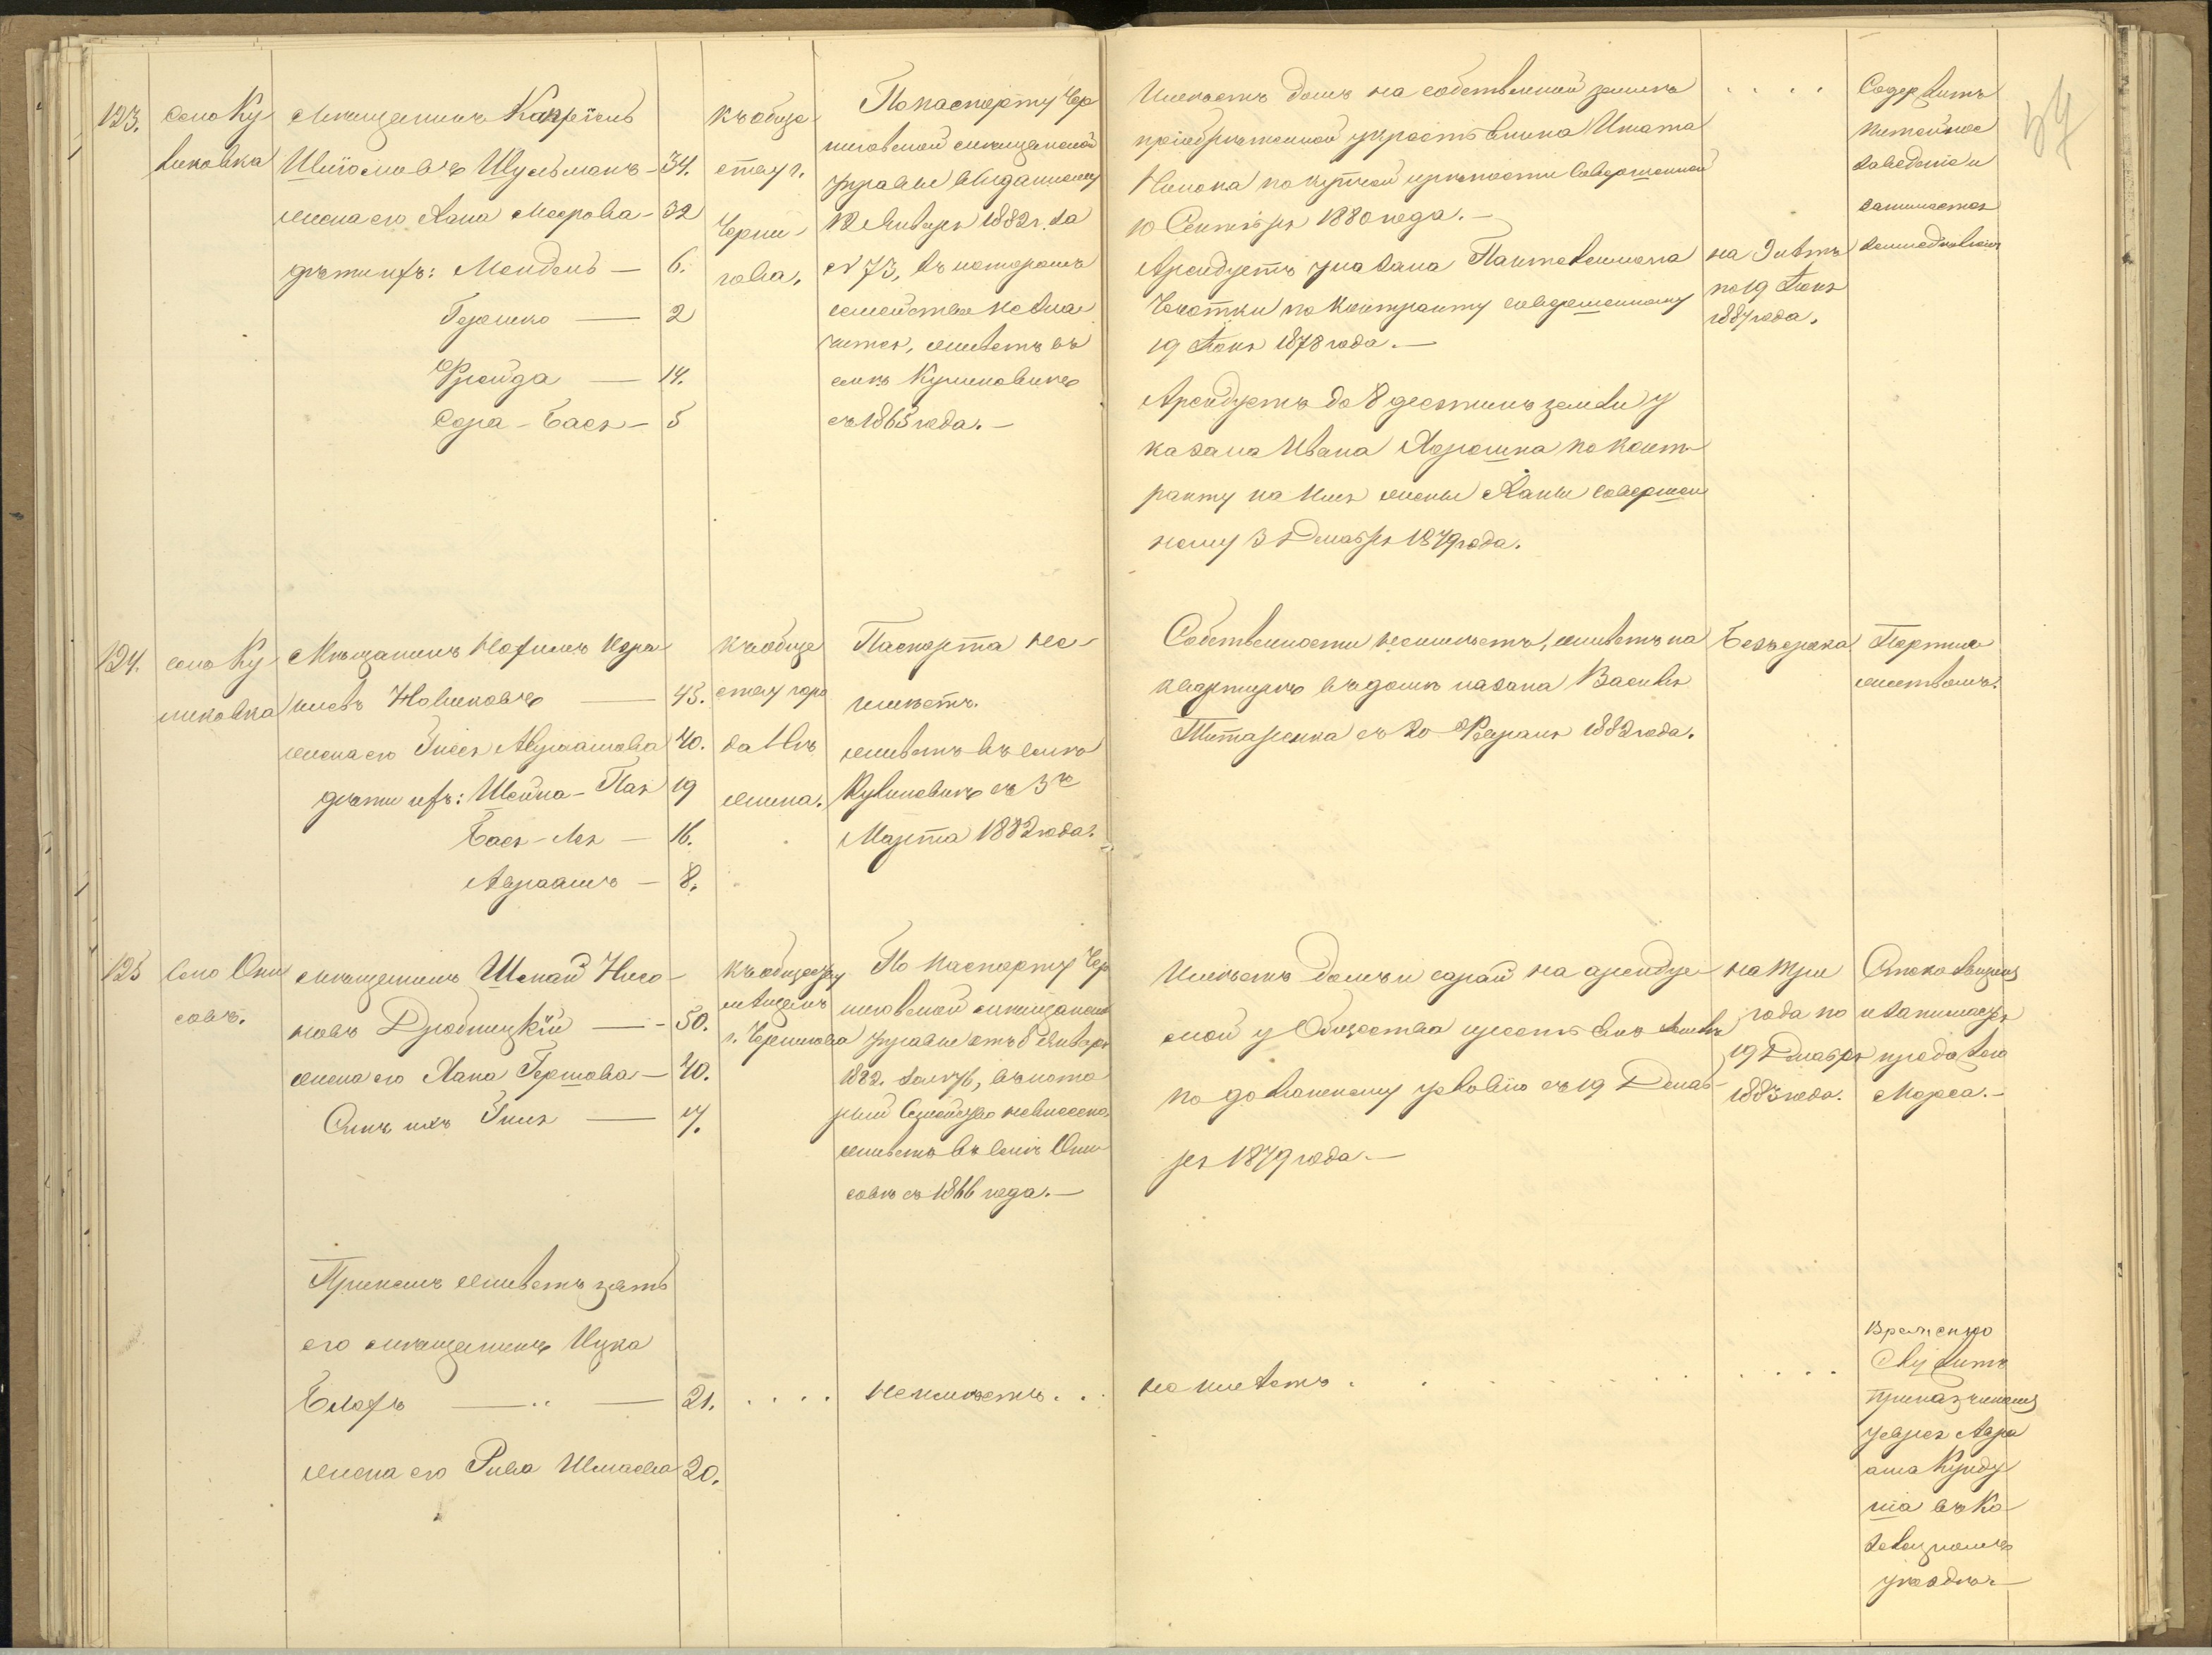 123.
село Ку
ликовка
Мѣщанинъ Капріель
Шліомовъ Шульманъ — 34.
жена его Хана Меерова — 32
дѣти ихъ: Мендель — 6.
Гершко — 2
Фрейда — 14.
Сора - Бася — 5
къ обще
ству г.
Черни-
гова.
По паспорту Чер
ниговской мѣщанской
управы выданному
12 Января 1882 г. за
№ 73, въ которомъ
семейство не зна
чится, живетъ въ
селѣ Куликовкѣ
съ 1865 года. —
Имѣетъ домъ на собственной землѣ
пріобрѣтенной у крестьянина Игната
по купчей крѣпости совершенной
10 Сентября 1880 года. —
Арендуетъ у казака Пантелеимона
по контракту совершенному
19 Юня 1878 года. —
Арендуетъ до 8 десятинъ земли у
казака Ивана Ярошка по конт-
ракту на имя жены Ханы совершен
ному 3 Декабря 1879 года.
. . . .
на 9 лѣтъ
по 19 Юня
1887 года.
Содержитъ
питейное
заведеніе и
занимается
земледѣліемъ
124.
село Ку
ликовка
Мѣщанинъ Нохимъ Изра
илевъ Новиковъ — 45.
жена его Энеся Абрамова 40.
дѣти ихъ: Шейна - Пая 19
Бася - Лея — 16.
Абраамъ — 8.
къ обще
ству горо
да Нѣ
жина.
Паспорта не-
имѣетъ.
живетъ въ селѣ
Куликовкѣ съ 3го
Марта 1882 года.
Собственности не имѣетъ, живетъ на
квартирѣ въ домѣ казака Василія
Титаренка съ 20 Февраля 1882 года.
Безъ срока
Портня
жествомъ.
125
Село Они
совъ.
мѣщанинъ Шмай Нисо-
новъ Дробницкій — 50.
жена его Хана Гершова — 40.
Сынъ ихъ Эиля — 7.
къ обществу
мѣщанъ
г. Чернигова
По паспорту Чер
ниговской мѣщанской
управы отъ 8 Января
1882. за № 76, въ кото
рый Семейство не внесено
живетъ въ селѣ Они
совѣ съ 1866 года. —
Имѣетъ домъ и сарай на арендуе-
мой у Общества крестьянъ землѣ
по домашнему условію съ 19 Декаб-
ря 1879 года. —
на три
года по
19 Декабря
1883 года.
Стекольщикъ
и занимается
продажею
Морса. —
При немъ живетъ зять
его мѣщанинъ Ицка
Блохъ — .. — 21.
жена его Рива Шмаева 20.
. . . .
не имѣетъ . .
не имѣетъ . . . . . . . . . .
Временно
служитъ
приказчикомъ
у еврея Абра
ама Кунду
ша въ Ко
зелецкомъ
уѣздѣ. —